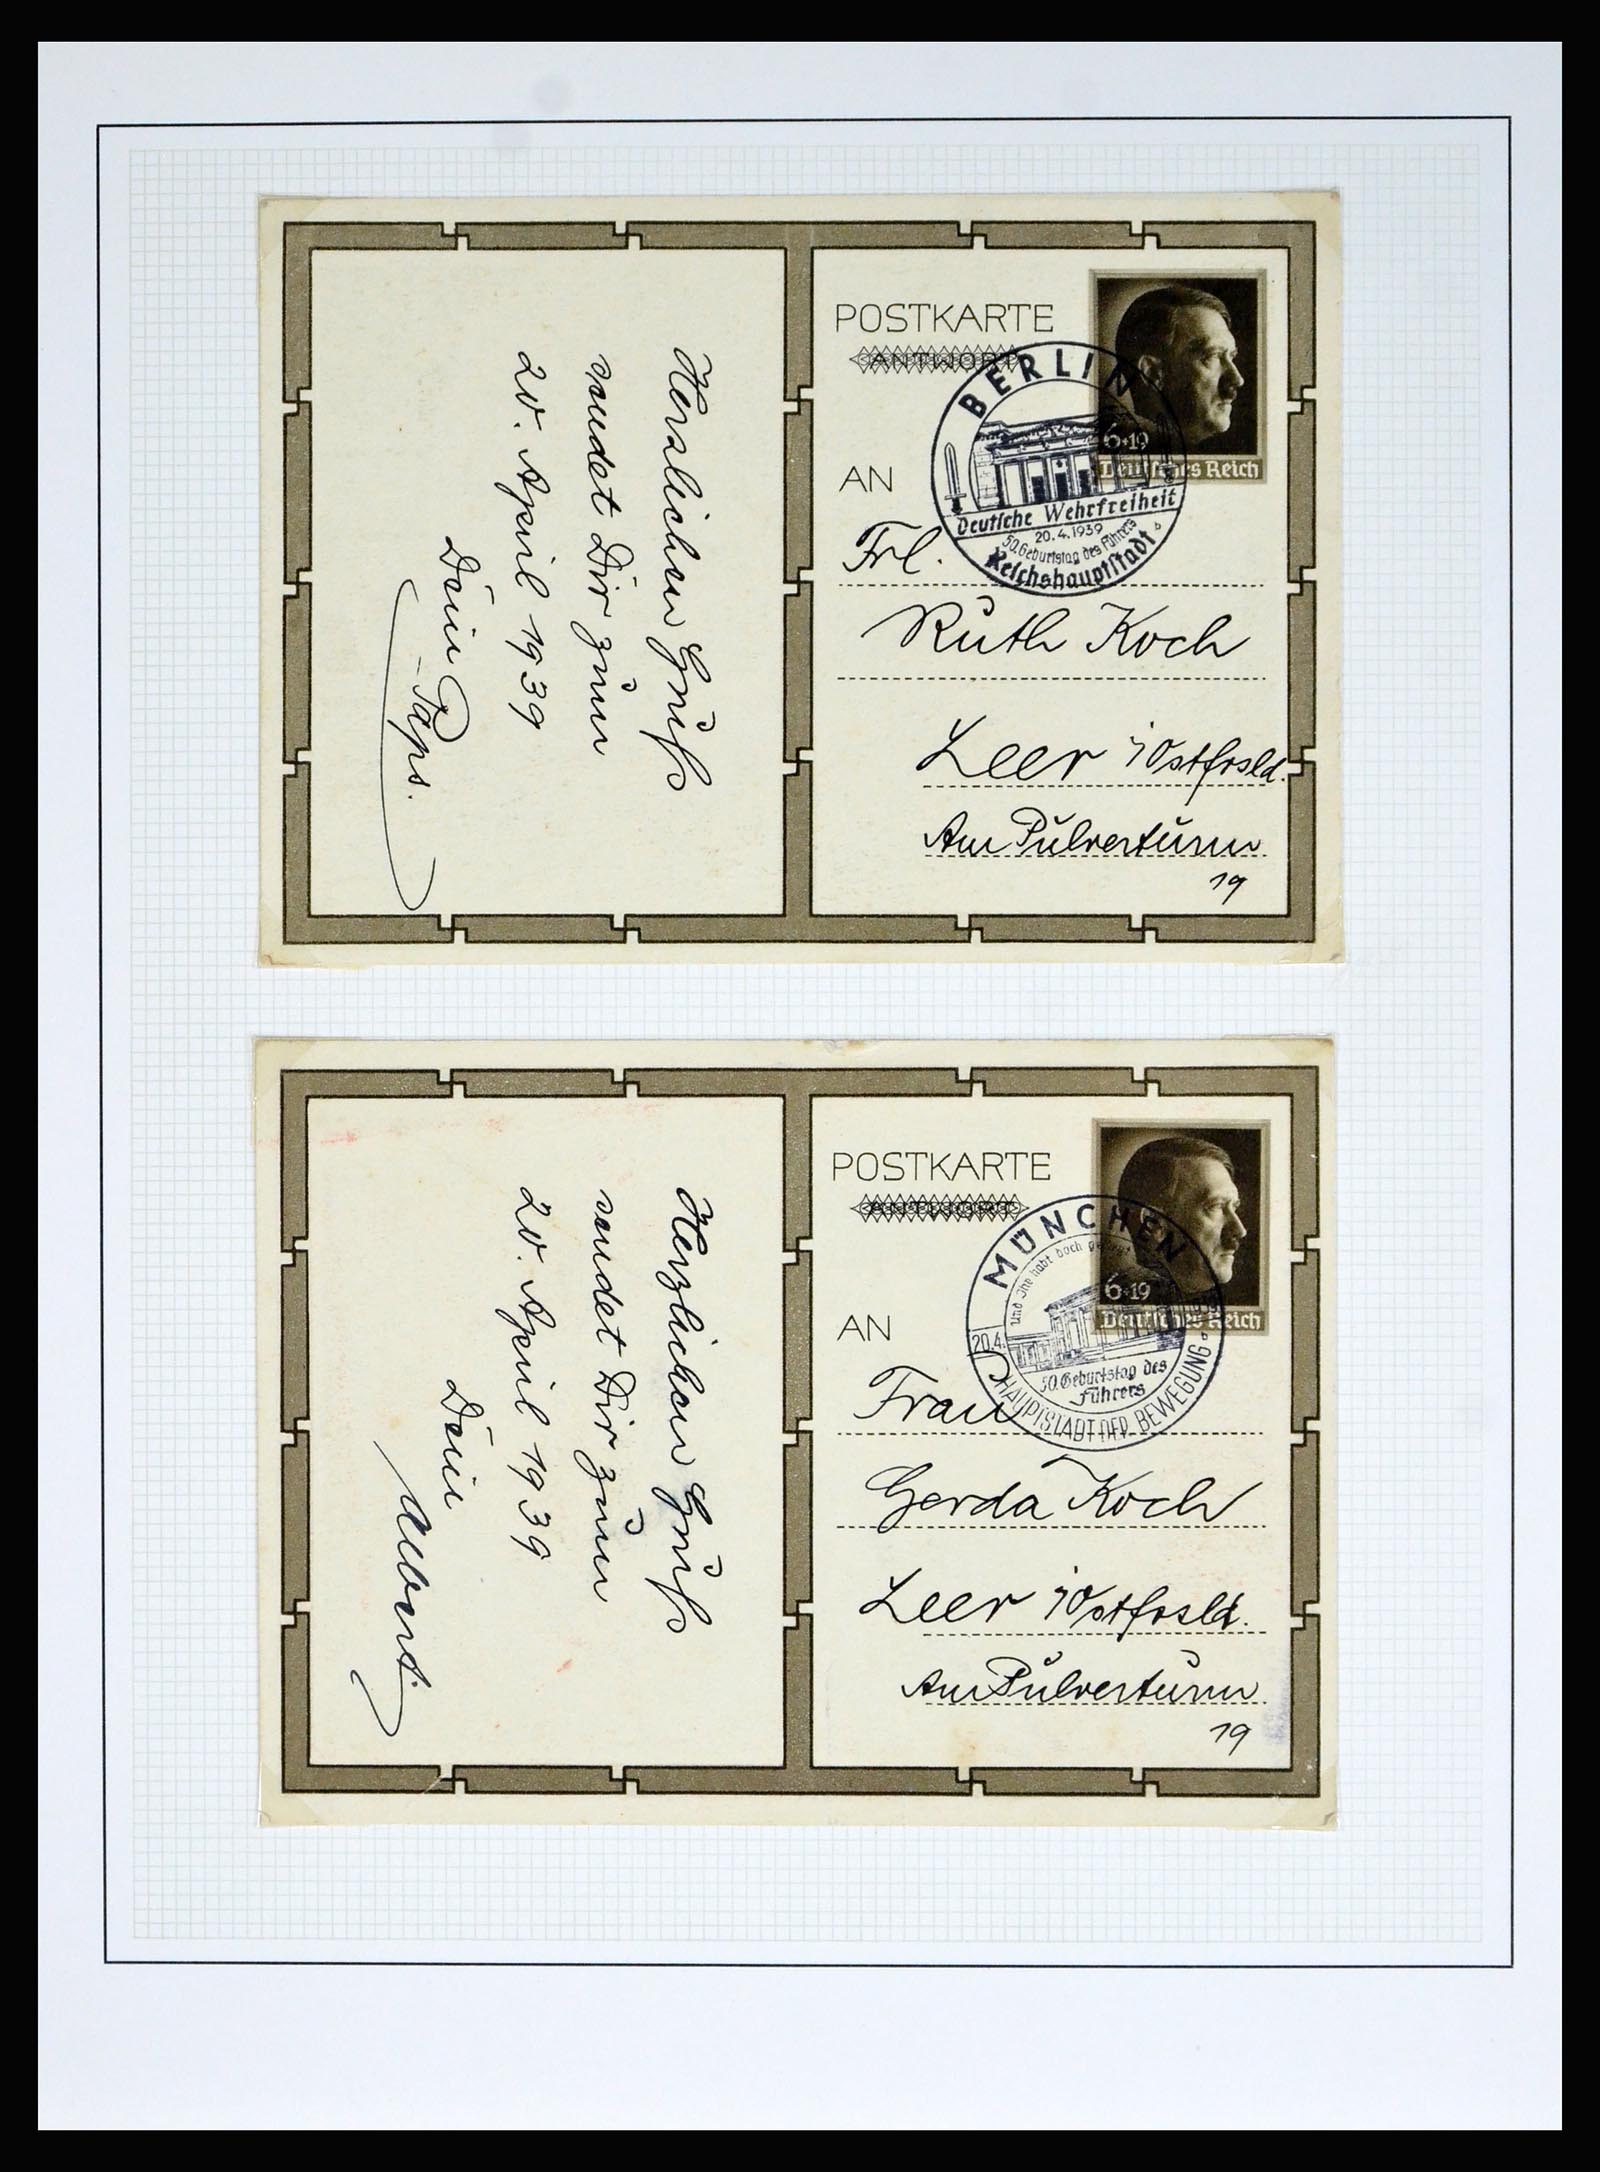 Herzlichen Gruß
sendet Dir zum
20. April 1939
Dein
Paps.
POSTKARTE
ANTWORT
6+19
Deutsches Reich
BERLIN
Deutsche Wehrfreiheit
20.4.1939
50. Geburtstag des Führers
Reichshauptstadt
b
AN
Frl.
Ruth Koch
Leer i/Ostfrsld.
Am Pulverturm
19
Herzlichen Gruß
sendet Dir zum
20. April 1939
Dein
Albert.
POSTKARTE
ANTWORT
6+19
Deutsches Reich
MÜNCHEN
und Ihr habt doch gesiegt
20.4.
50. Geburtstag des
Führers
HAUPTSTADT DER BEWEGUNG
AN
Frau
Gerda Koch
Leer i/Ostfrsld.
Am Pulverturm
19